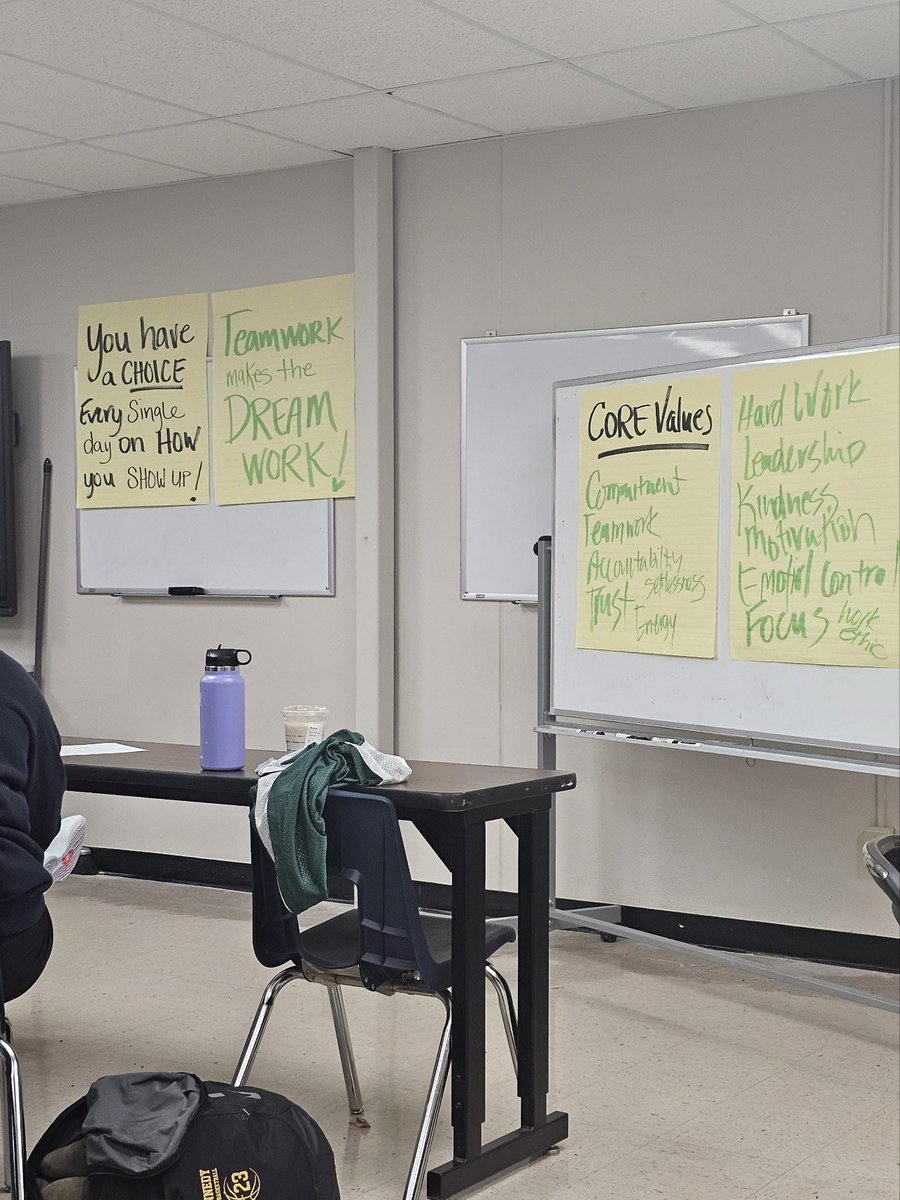 You have
a CHOICE
Every Single
day on How
you SHOW UP!
Teamwork
makes the
DREAM
WORK!
CORE Values
Commitment
Teamwork
Accountability
selflessness
Trust
Energy
Hard Work
Leadership
Kindness,
Motivation
Emotinl Control
Focus
work
ethic
NNEDY
BASKETBALL
23